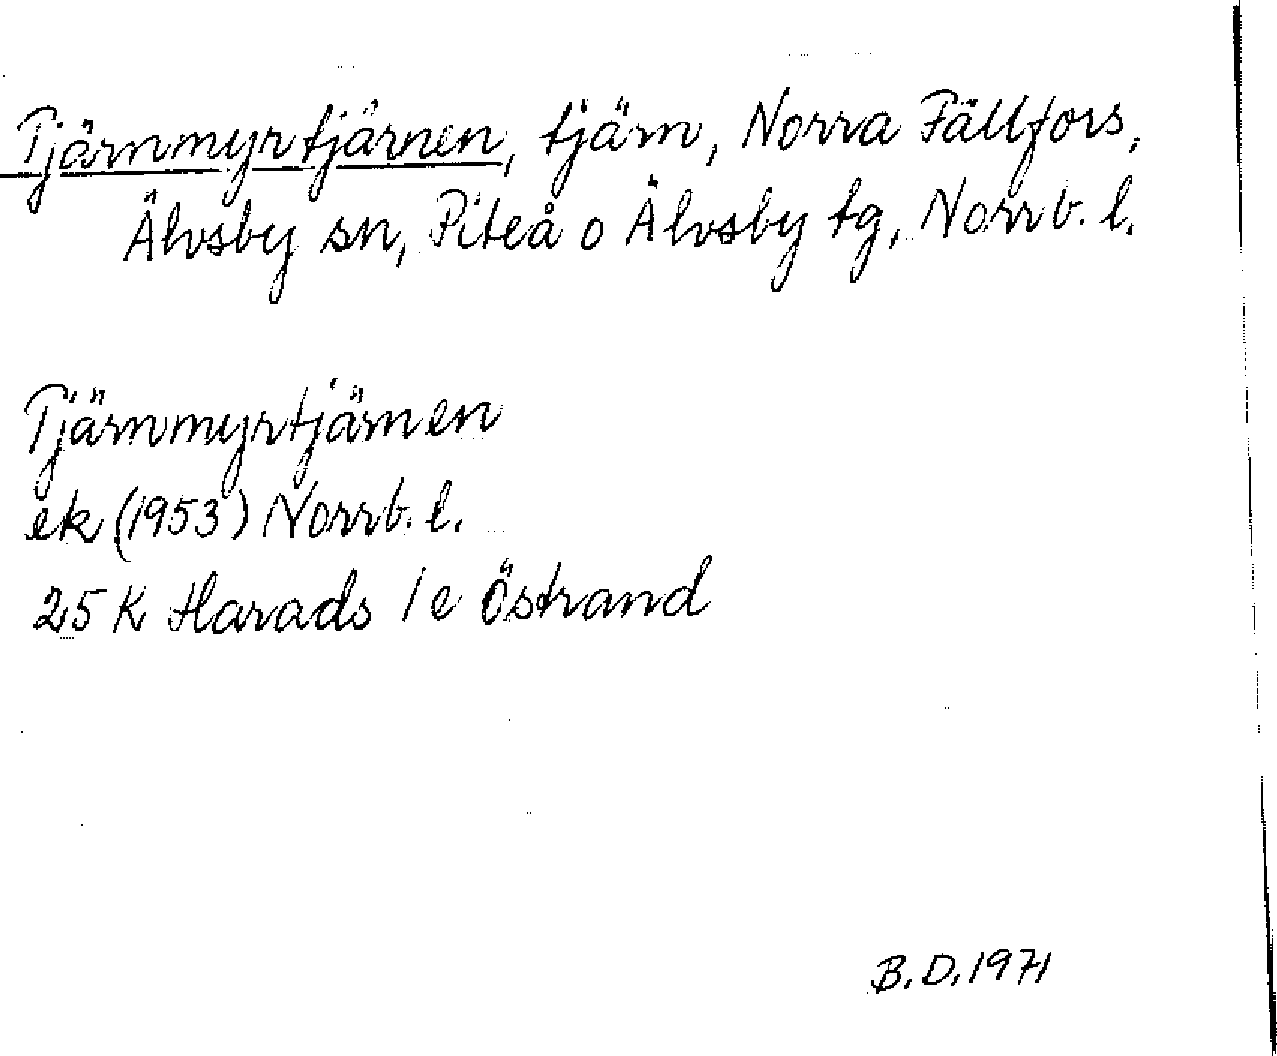 Tjärnmyrtjärnen, tjärn, Norra Fällfors,
Älvsby sn, Piteå o Älvsby tg, Norrb. l.
Tjärnmyrtjärnen
ek (1953) Norrb. l.
25 K Harads 1 e Östrand
B.D. 1971